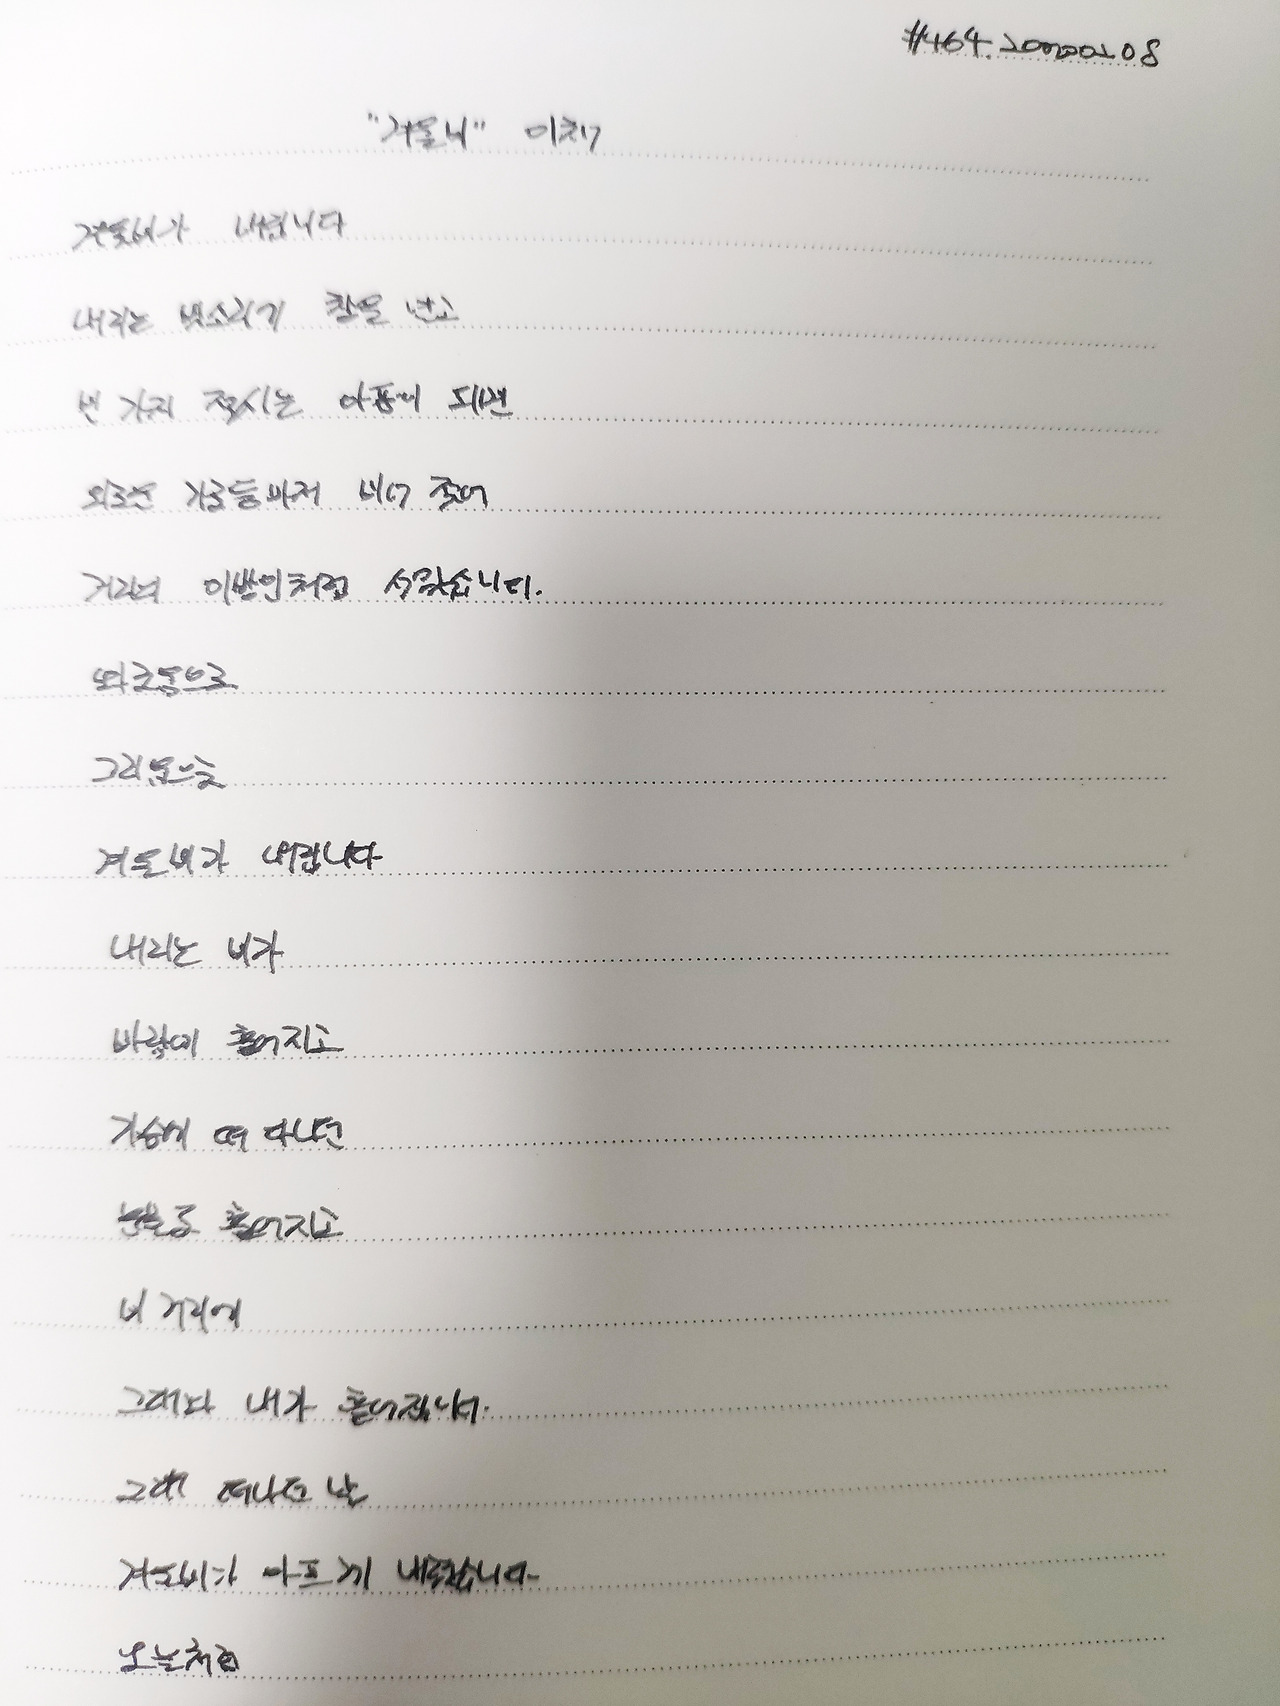 #464. 20200208
"겨울비" 이채
겨울비가 내립니다
내리는 빗소리가 창을 넘고
빈 가지 적시는 아픔이 되면
외로운 가로등마저 비에 젖어
거리의 이방인처럼 서 있습니다.
외로움으로
그리움으로
겨울비가 내립니다
내리는 비가
바람에 흩어지고
가슴에 떠다니던
눈물도 흩어지고
비 거리에
그대와 내가 흩어집니다.
그대 떠나던 날
겨울비가 아프게 내렸습니다
오늘처럼